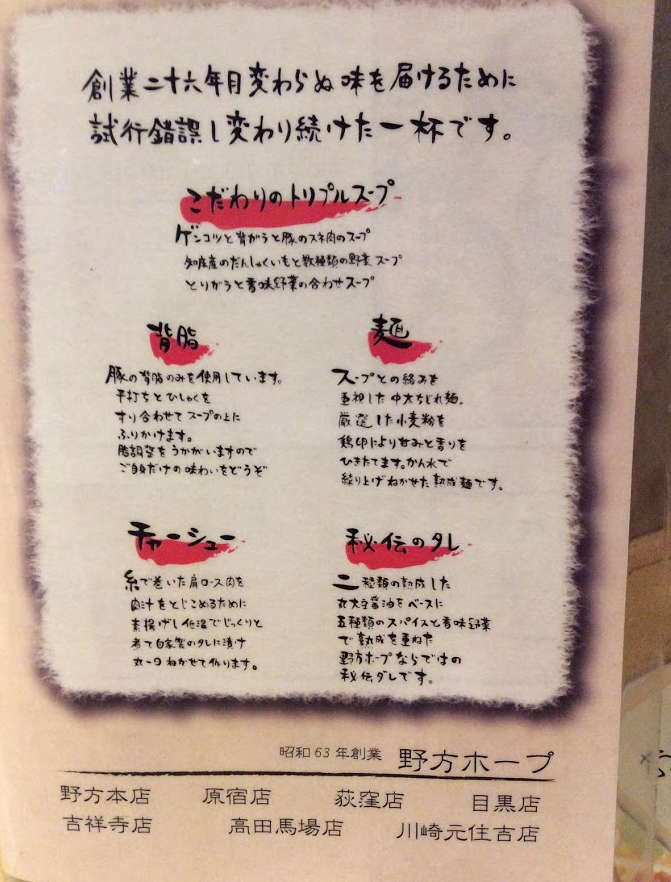 創業二十六年目変わらぬ味を届けるために
試行錯誤し変わり続けた一杯です。
こだわりのトリプルスープ
ゲンコツと背がらと豚のスネ肉のスープ
知床産のだんしゃくいもと数種類の野菜スープ
とりがらと香味野菜の合わせスープ
背脂
豚の背脂のみを使用しています。
平打ちとひしゃくを
すり合わせてスープの上に
ふりかけます。
脂調整をうかがいますので
ご自身だけの味わいをどうぞ
麺
スープとの絡みを
重視した中太ちぢれ麺。
厳選した小麦粉を
鶏卵により甘みと香りを
ひきたてます。かん水で
練り上げねかせた熟成麺です。
チャーシュー
糸で巻いた肩ロース肉を
肉汁をとじこめるために
素揚げし低温でじっくりと
煮て自家製のタレに漬け
丸一日ねかせて作ります。
秘伝のタレ
二種類の熟成した
丸大豆醤油をベースに
五種類のスパイスと香味野菜
で熟成を重ねた
野方ホープならではの
秘伝ダレです。
昭和63年創業 野方ホープ
野方本店 原宿店 荻窪店 目黒店
吉祥寺店 高田馬場店 川崎元住吉店